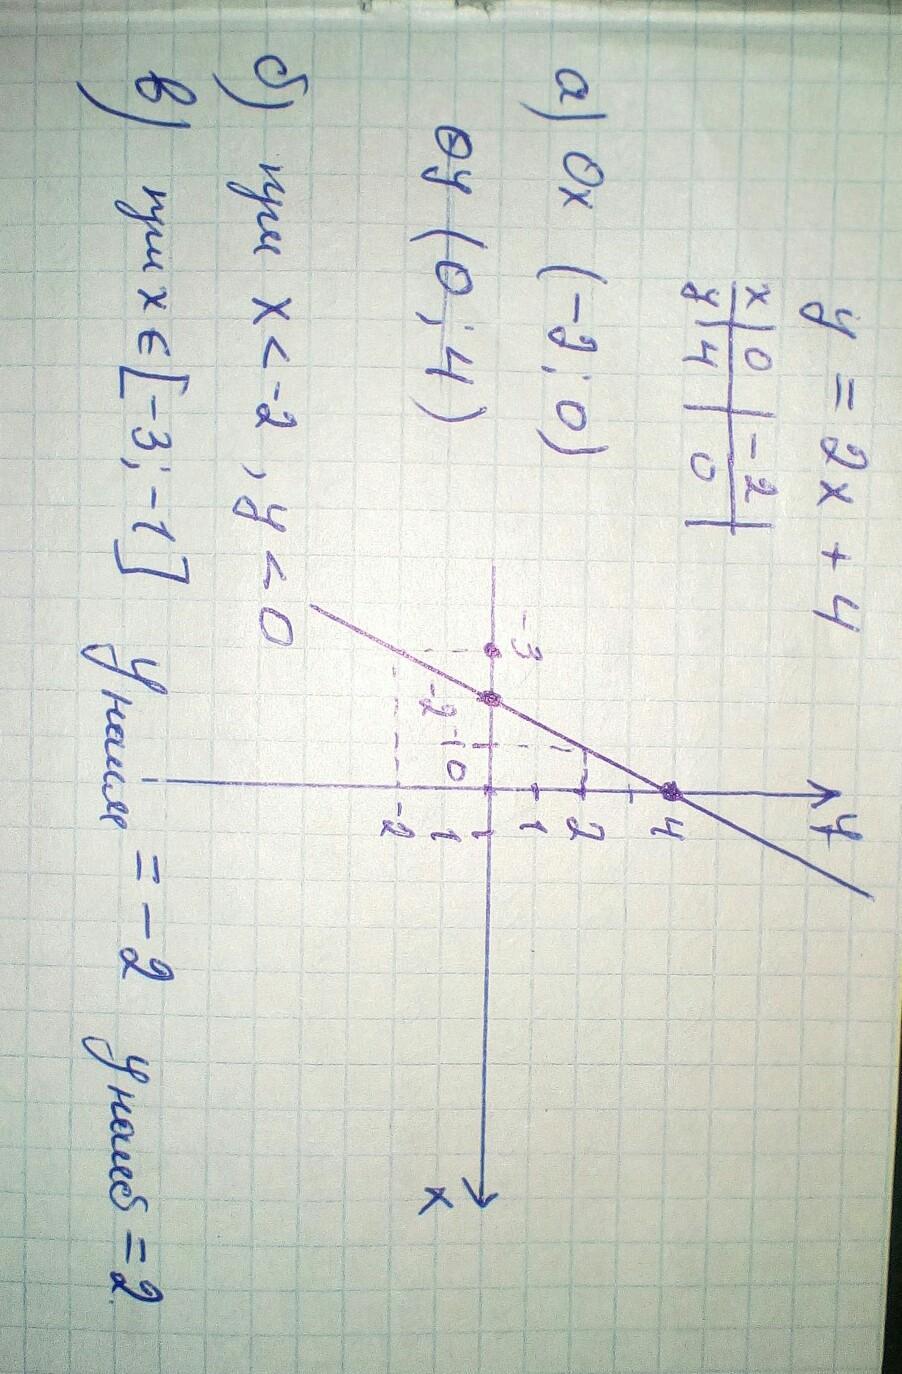 y = 2x + 4
x | 0 | -2
y | 4 | 0
а) Ox (-2; 0)
Oy (0; 4)
б) при x < -2, y < 0
в) при x ∈ [-3; -1] yнаим = -2 yнаиб = 2
y
4
2
1
-3
-2
-1
0
1
-2
x